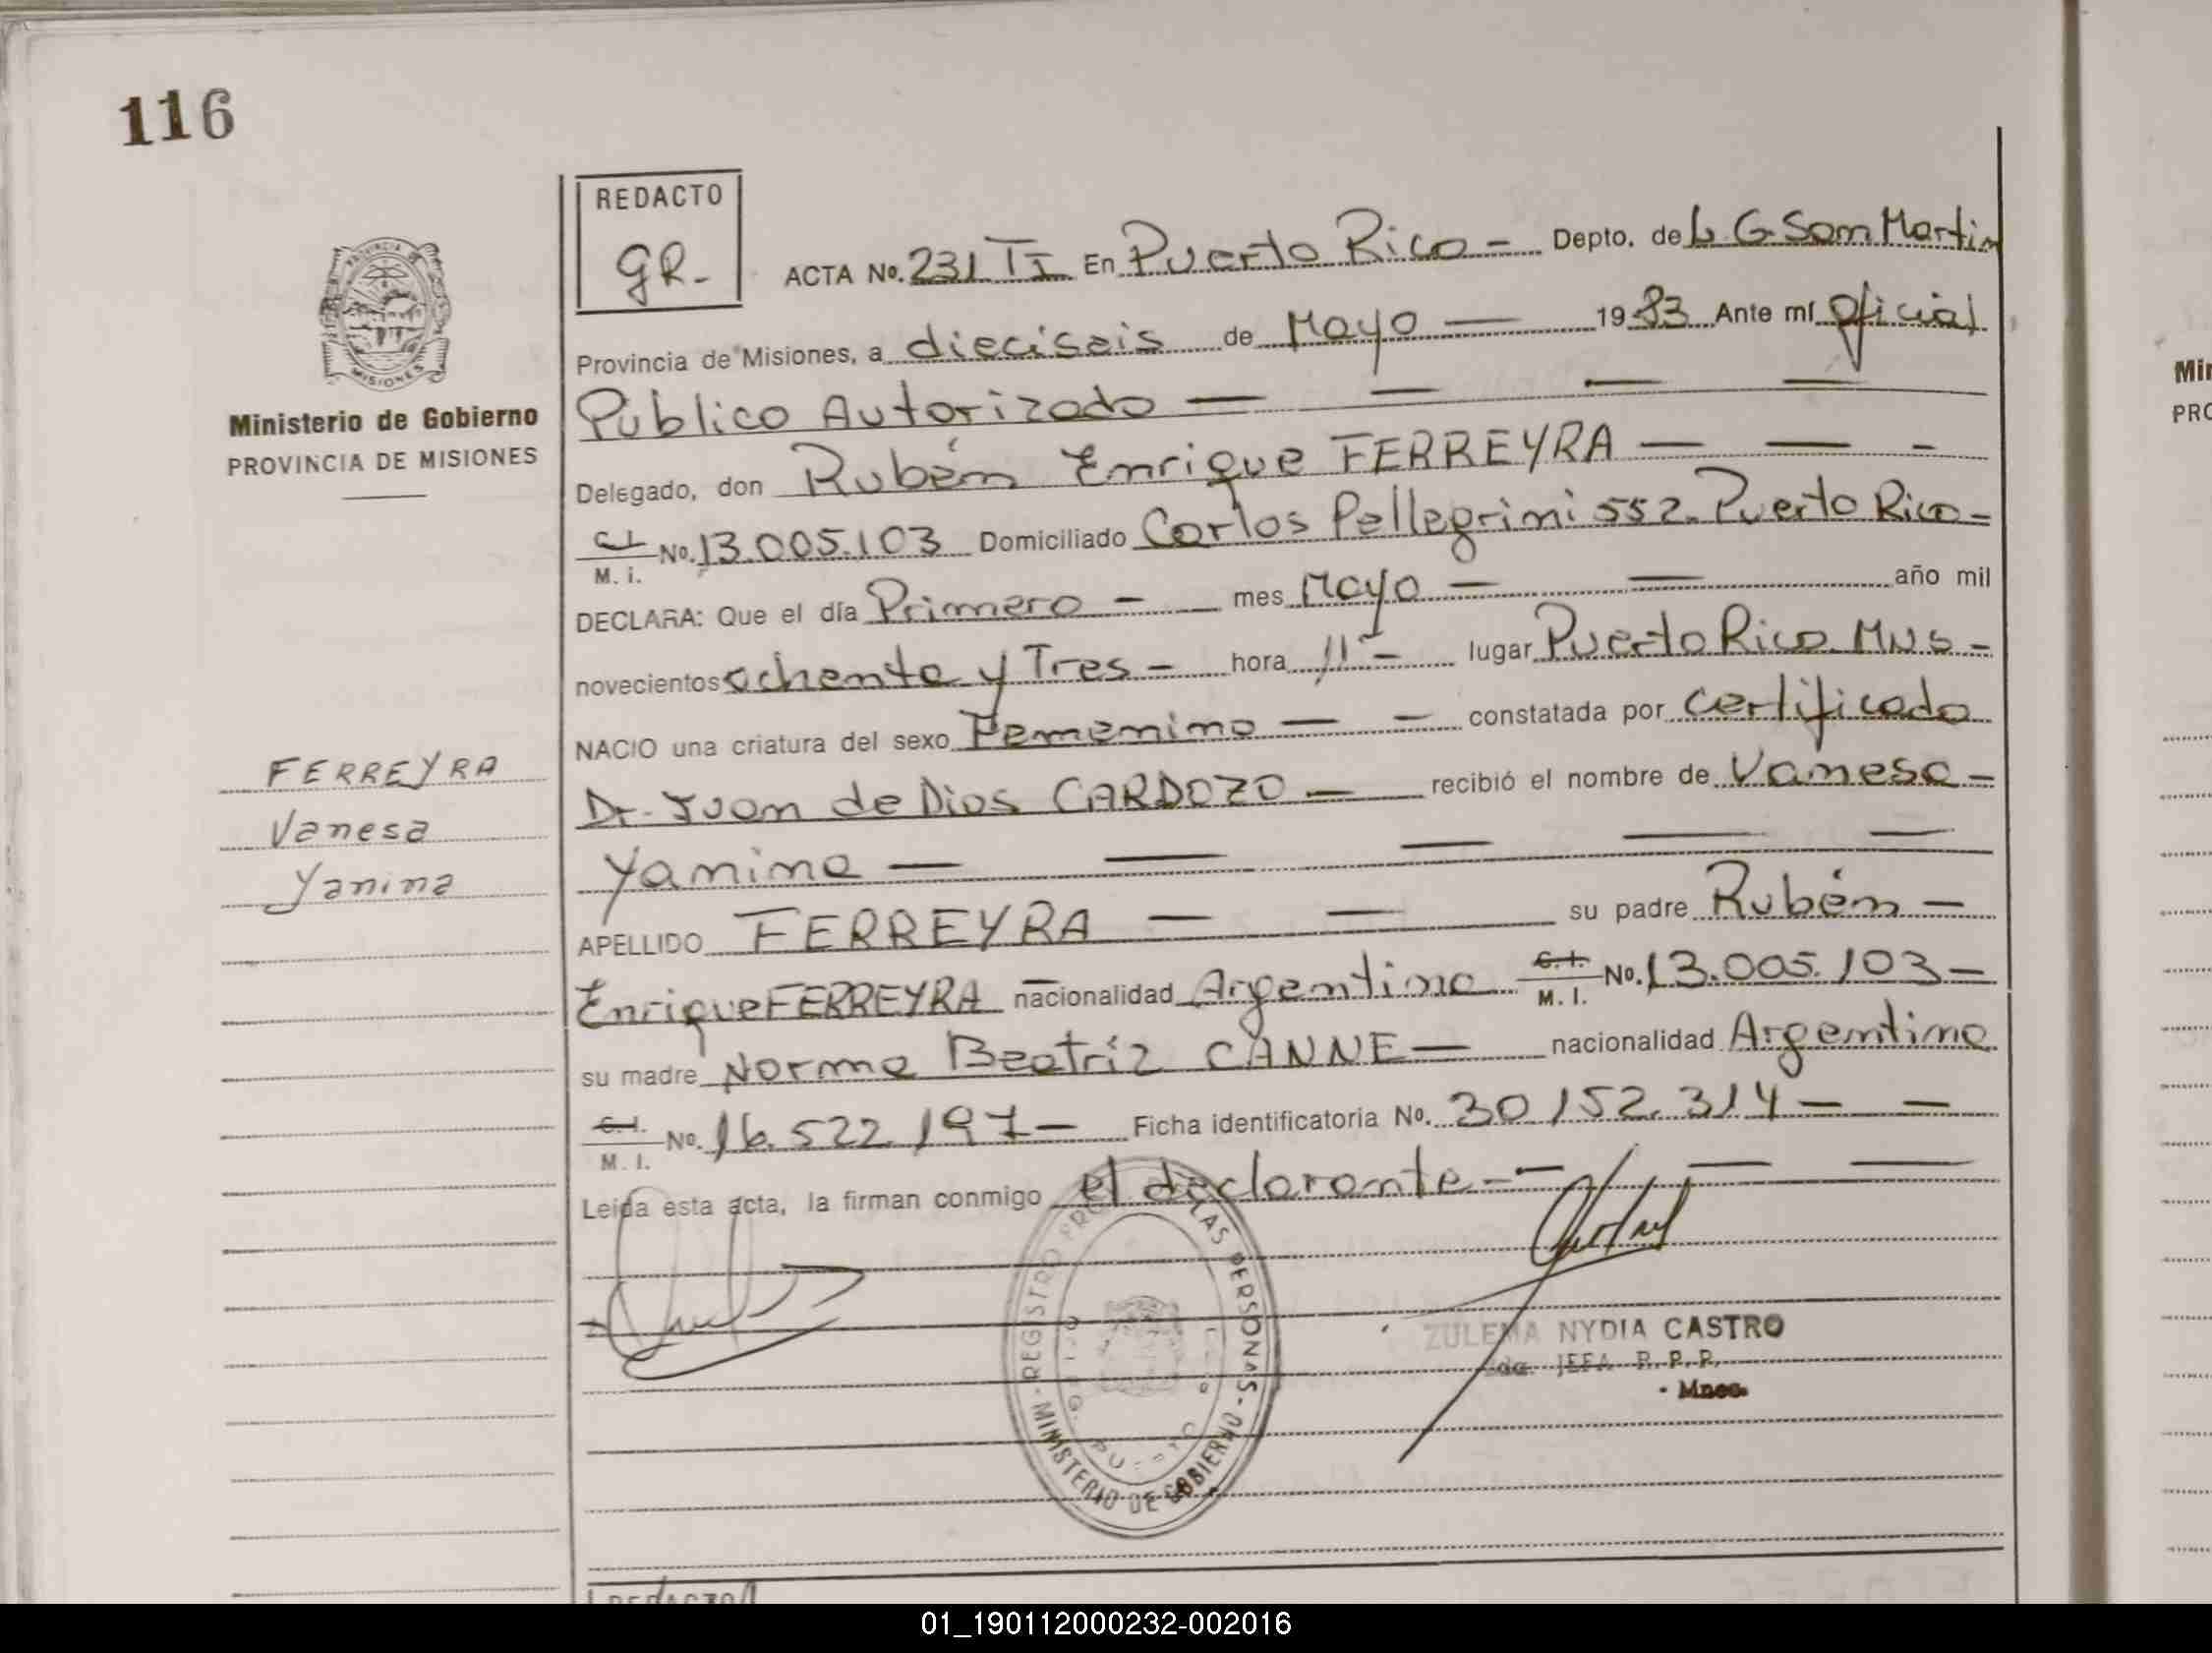 116
REDACTO
GR.-
ACTA No. 231 TI En Puerto Rico - Depto. de L. G. San Martin
Provincia de Misiones, a dieciseis de Mayo — 1983 Ante mí oficial
Público Autorizado — — — —
Delegado, don Rubén Enrique FERREYRA — — -
C.I. No. 13.005.103 Domiciliado Carlos Pellegrini 552. Puerto Rico -
M. i.
DECLARA: Que el día Primero - mes Mayo — — año mil
novecientos ochenta y Tres - hora 11 - lugar Puerto Rico. Mns -
NACIO una criatura del sexo Femenino — — constatada por certificado
Dr. Juan de Dios CARDOZO — recibió el nombre de Vanesa -
Yanina — — — — —
APELLIDO FERREYRA — — su padre Rubén -
Enrique FERREYRA nacionalidad Argentina C.I. No. 13.005.103 -
M. I.
su madre Norma Beatríz CANNE — nacionalidad Argentina
C.I. No. 16.522.197 - Ficha identificatoria No. 30.152.314 - -
M. I.
Leida esta acta, la firman conmigo el declarante - — — —
Ministerio de Gobierno
PROVINCIA DE MISIONES
PROVINCIA DE MISIONES
FERREYRA
Vanesa
Yanina
REGISTRO LAS PERSONAS - MINISTERIO DE GOBIERNO -
ZULEMA NYDIA CASTRO
JEFA R.P.P.
- Mnes.
REDACTO
Min
PRO
01_190112000232-002016